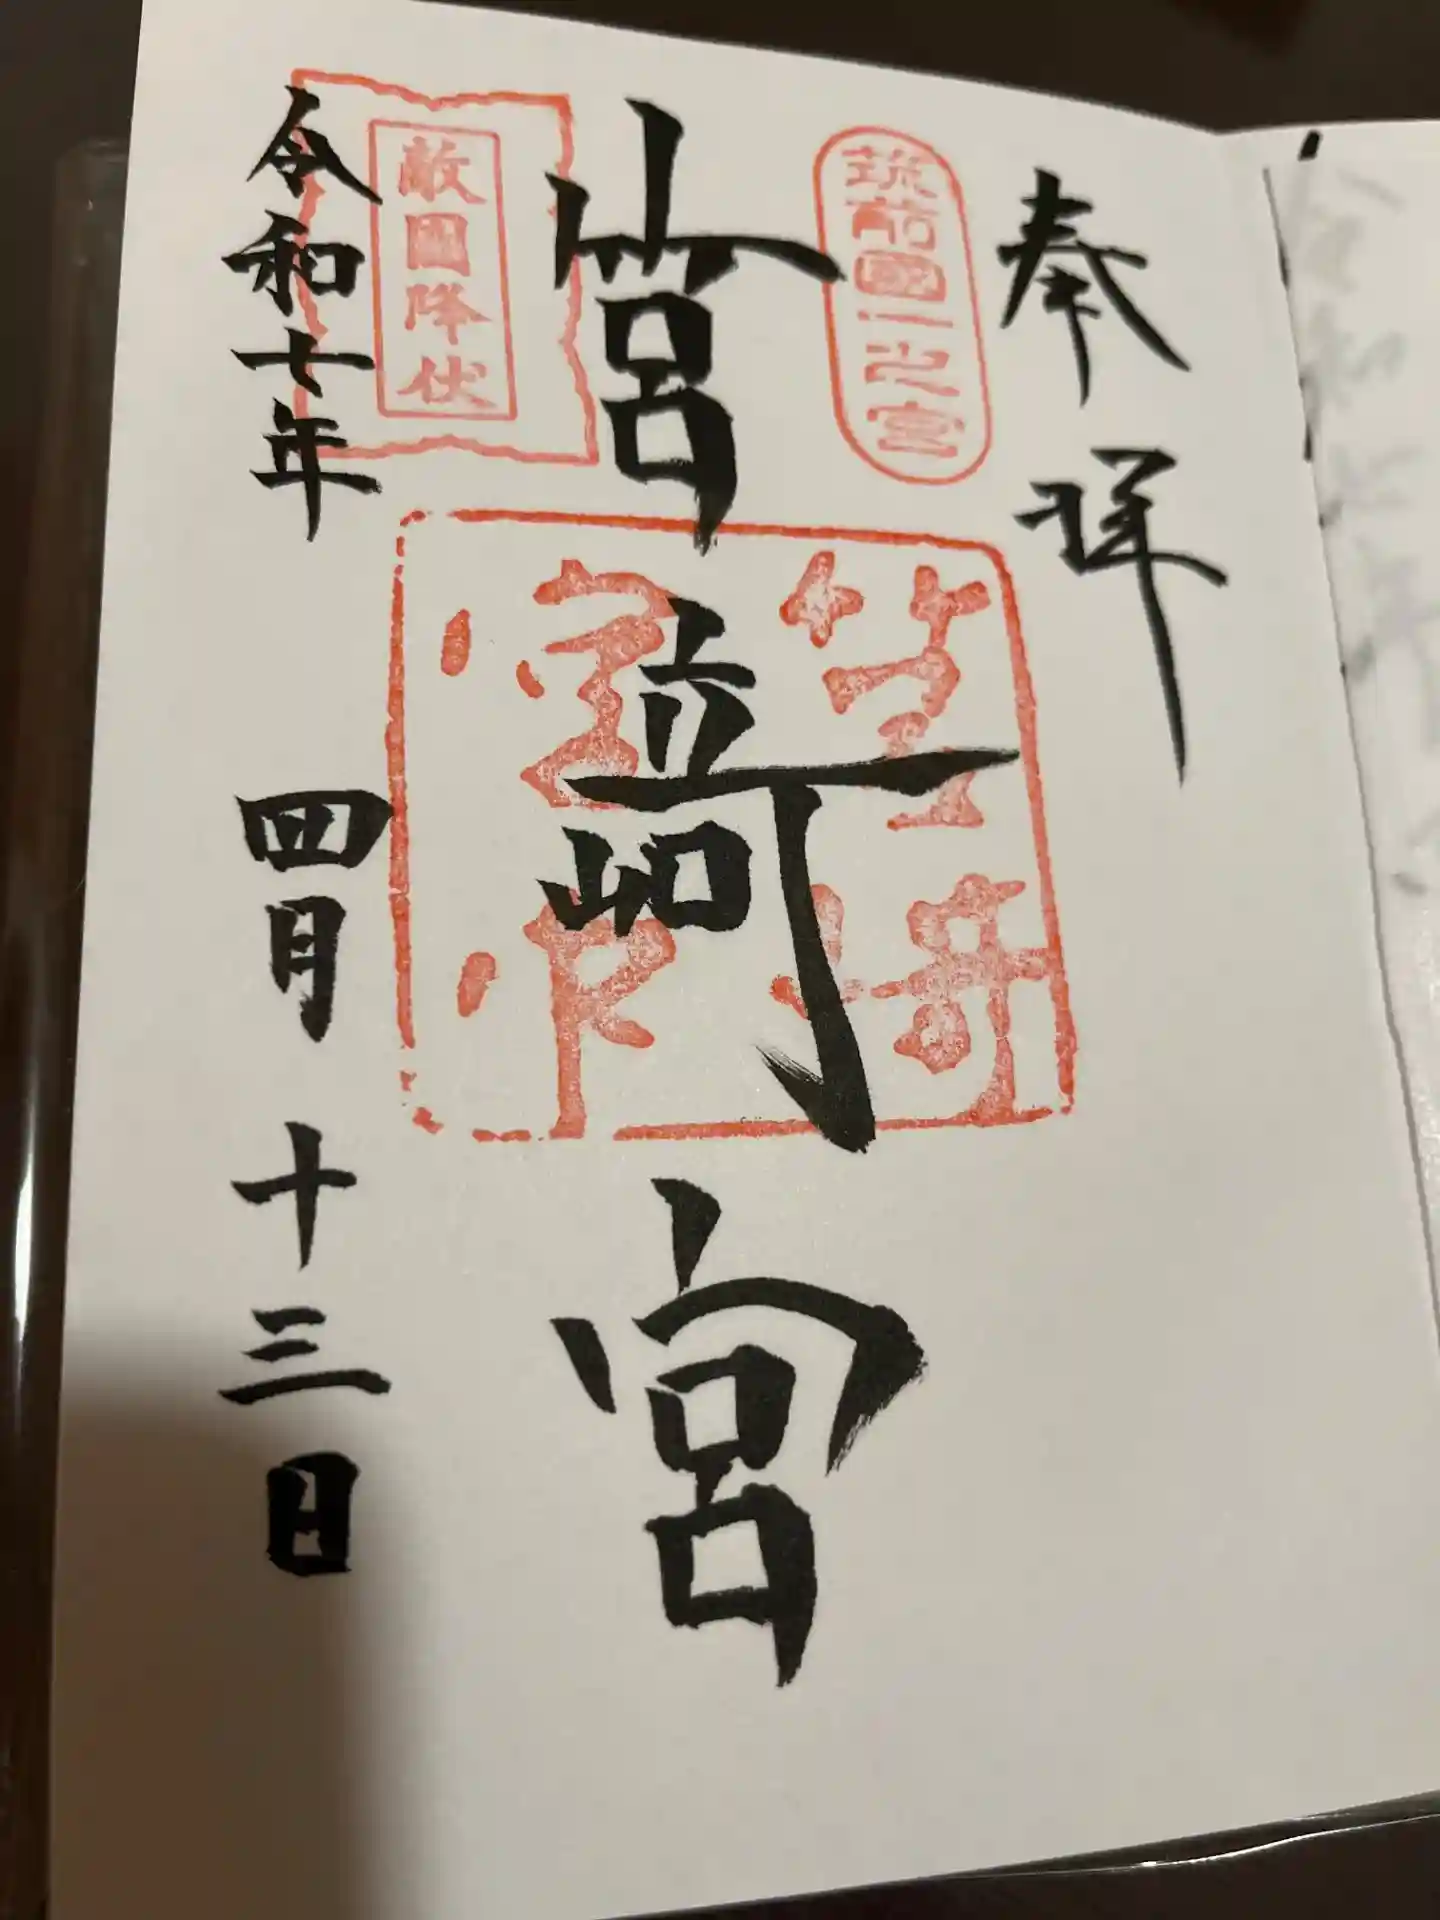 奉拝
筑前國一之宮
筥崎宮
筥崎宮印
敵國降伏
令和七年 四月 十三日